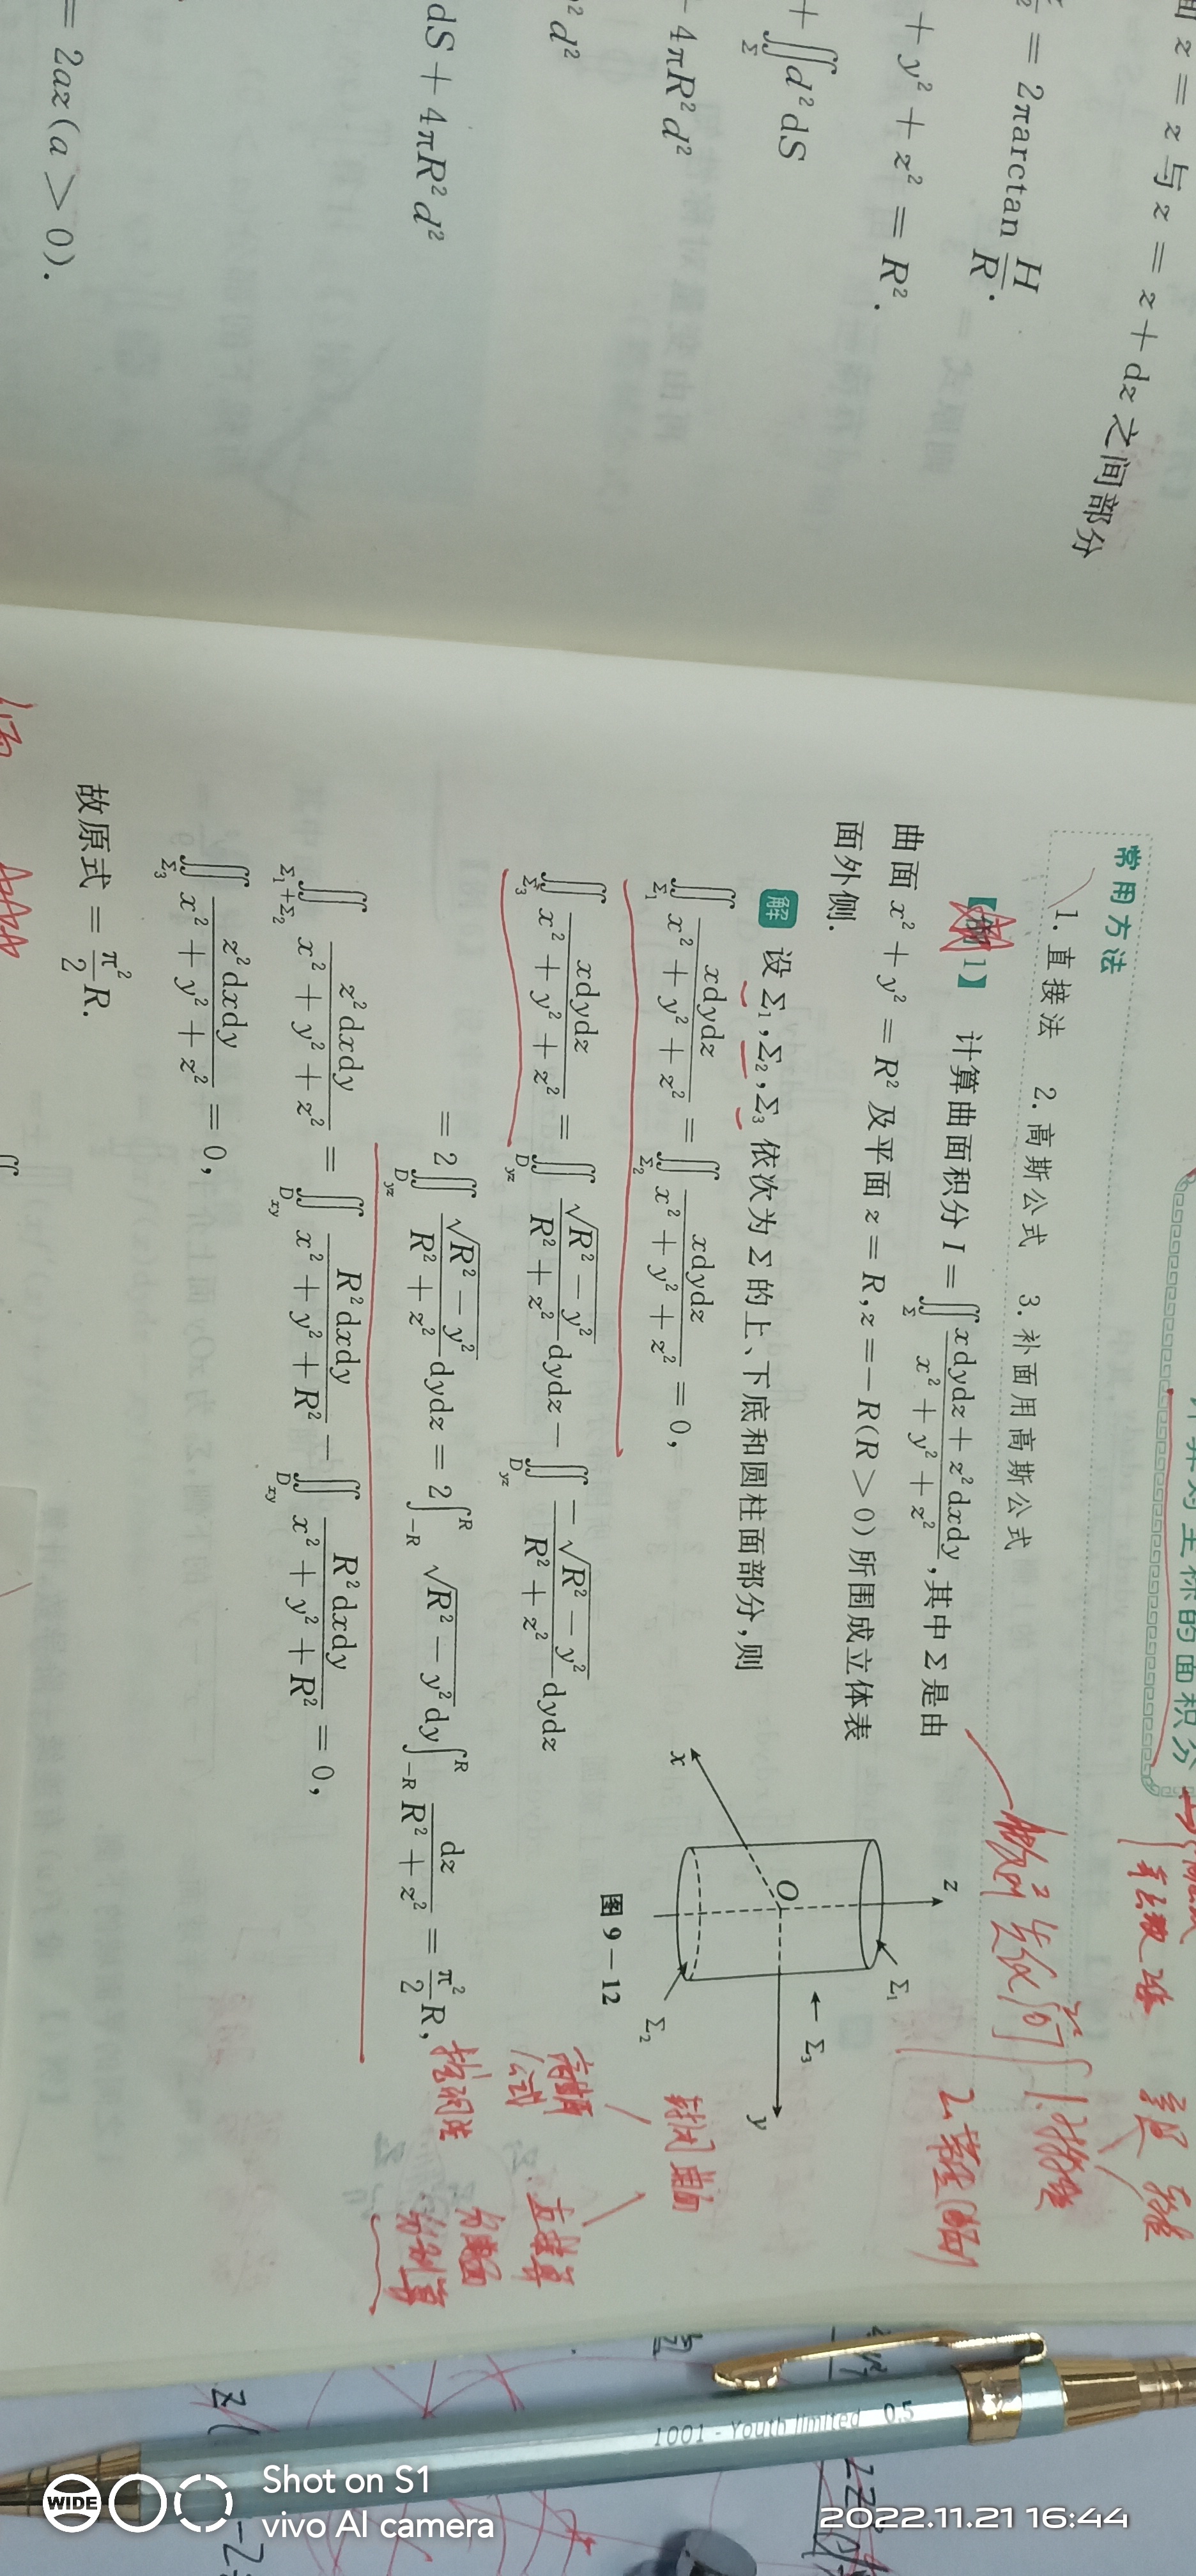 面 z = z 与 z = z + dz 之间部分
= 2πarctan H/R.
+ y² + z² = R².
+ ∬_Σ d² dS
4πR² d²
d²
dS + 4πR² d²
= 2az(a > 0).
标的面积分
常用方法
1. 直接法 2. 高斯公式 3. 补面用高斯公式
【例1】 计算曲面积分 I = ∬_Σ (xdydz + z²dxdy)/(x² + y² + z²), 其中 Σ 是由
曲面 x² + y² = R² 及平面 z = R, z = − R(R > 0) 所围成立体表
面外侧.
解 设 Σ₁, Σ₂, Σ₃ 依次为 Σ 的上、下底和圆柱面部分, 则
∬_Σ₁ xdydz/(x² + y² + z²) = ∬_Σ₂ xdydz/(x² + y² + z²) = 0,
∬_Σ₃ xdydz/(x² + y² + z²) = ∬_Dyz √(R² − y²)/(R² + z²) dydz − ∬_Dyz −√(R² − y²)/(R² + z²) dydz
= 2∬_Dyz √(R² − y²)/(R² + z²) dydz = 2∫_−R^R √(R² − y²) dy ∫_−R^R dz/(R² + z²) = π²/2 R,
∬_Σ₁+Σ₂ z²dxdy/(x² + y² + z²) = ∬_Dxy R²dxdy/(x² + y² + R²) − ∬_Dxy R²dxdy/(x² + y² + R²) = 0,
∬_Σ₃ z²dxdy/(x² + y² + z²) = 0,
故原式 = π²/2 R.
z
x
O
y
Σ₁
Σ₂
Σ₃
图 9－12
封闭曲面
高斯
公式
挖洞法
直接算
分别算
1001 - Youth limited 0.5
WIDE
Shot on S1
vivo AI camera
2022.11.21 16:44